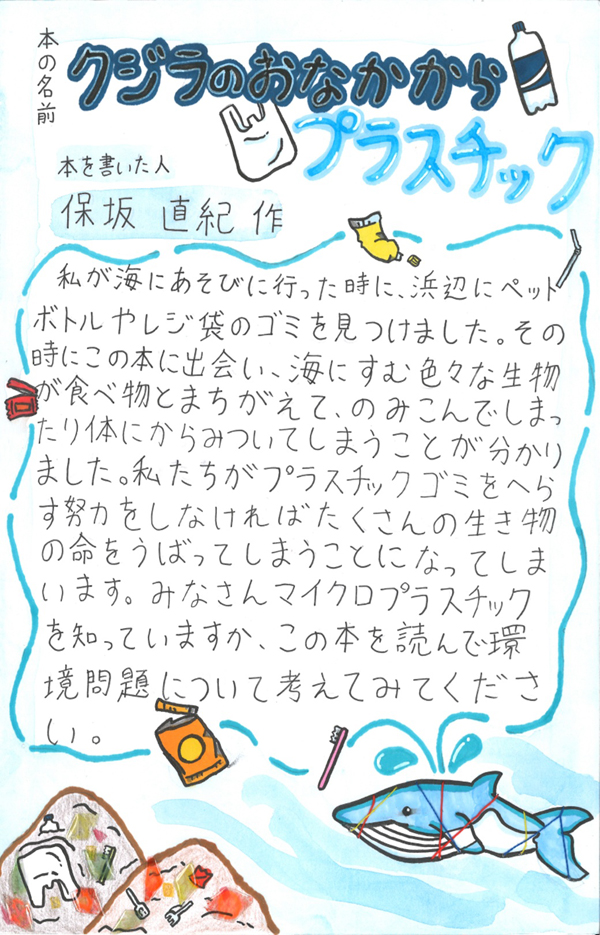 本の名前
クジラのおなかから
プラスチック
本を書いた人
保坂 直紀 作
私が海にあそびに行った時に、浜辺にペット
ボトルやレジ袋のゴミを見つけました。その
時にこの本に出会い、海にすむ色々な生物
が食べ物とまちがえて、のみこんでしまっ
たり体にからみついてしまうことが分かり
ました。私たちがプラスチックゴミをへら
す努力をしなければたくさんの生き物
の命をうばってしまうことになってしま
います。みなさんマイクロプラスチック
を知っていますか、この本を読んで環
境問題について考えてみてくださ
い。